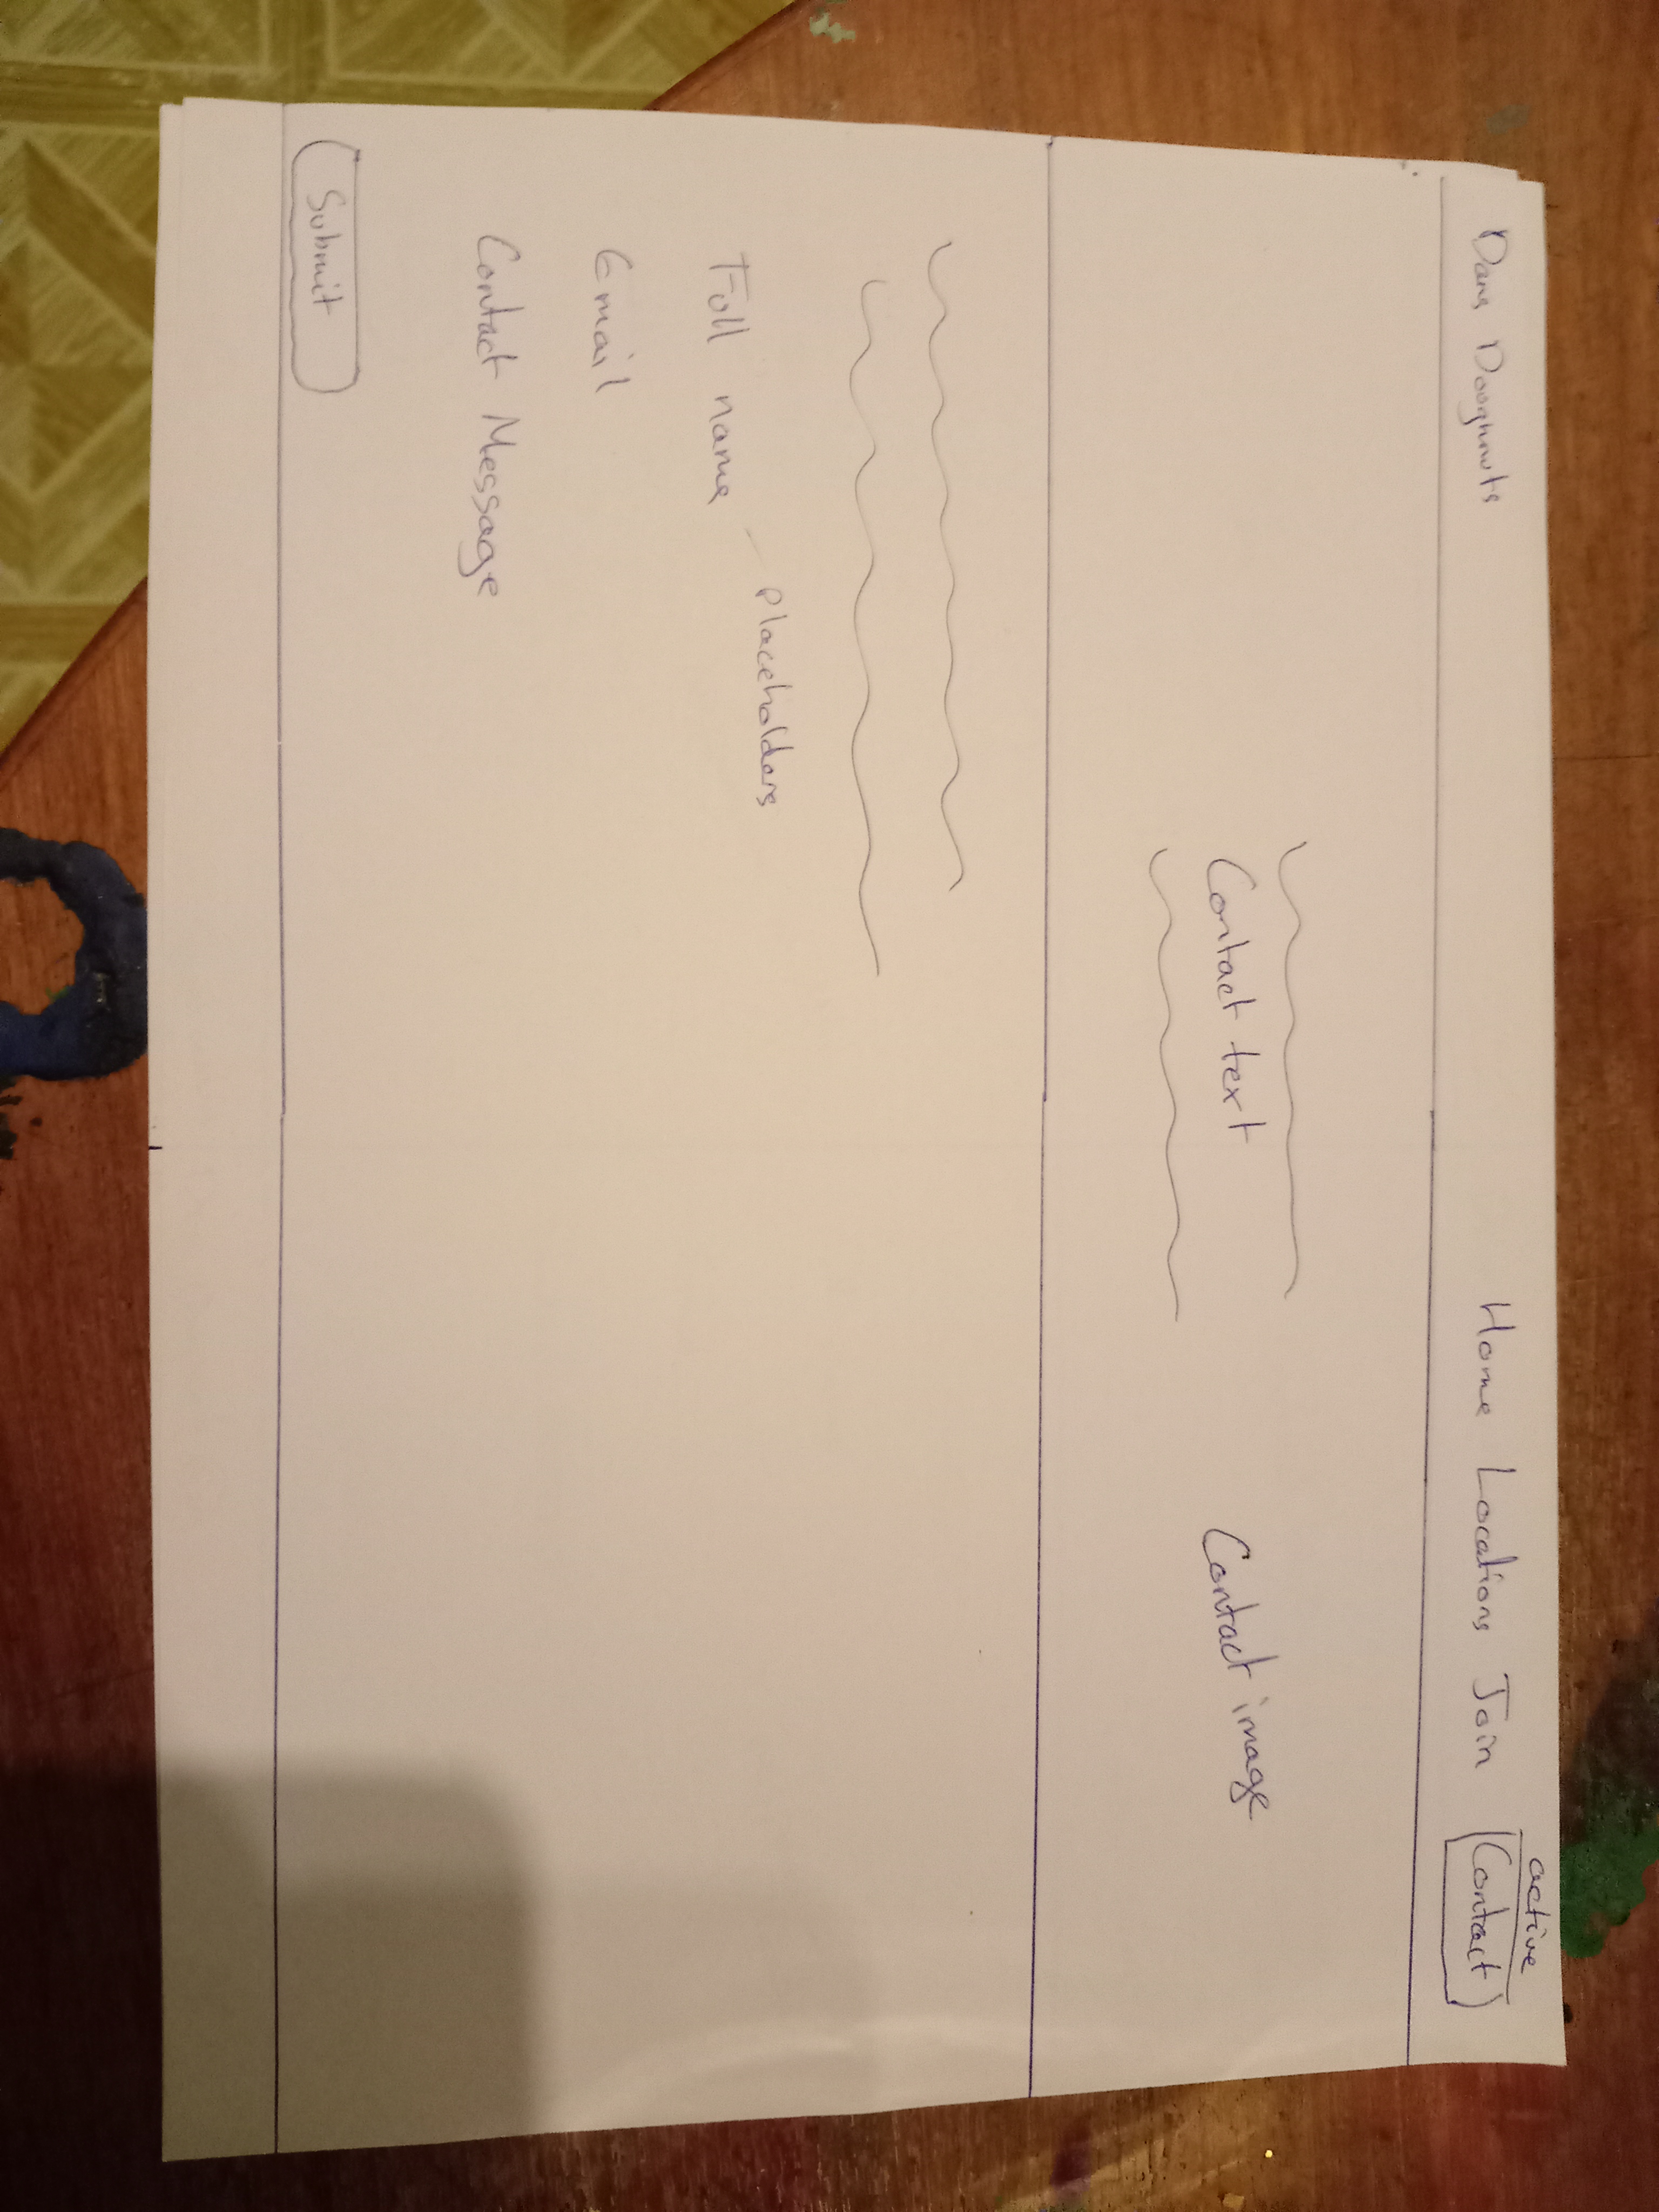 Dans Doughnuts Home Locations Join Contact
active
Contact text
Contact image
Full name - placeholders
Email
Contact Message
Submit